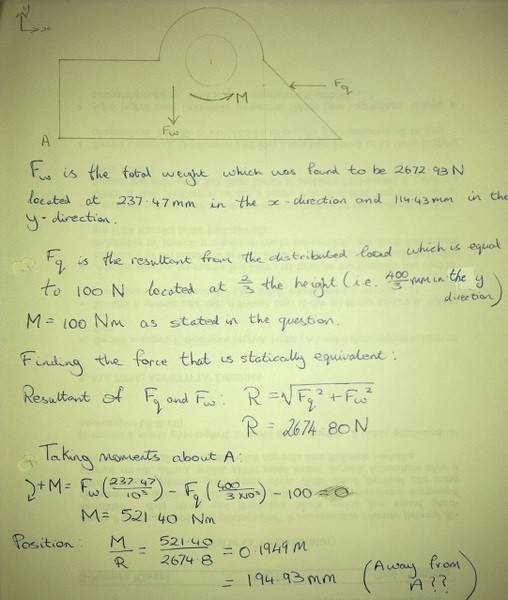 y
x
M
F_q
F_w
A
F_w is the total weight which was found to be 2672.93 N
located at 237.47 mm in the x-direction and 114.43 mm in the
y-direction.
F_q is the resultant from the distributed load which is equal
to 100 N located at 2/3 the height (i.e. 400/3 mm in the y
direction)
M = 100 Nm as stated in the question.
Finding the force that is statically equivalent:
Resultant of F_q and F_w: R = √(F_q² + F_w²)
R = 2674.80 N
Taking moments about A:
↷+M = F_w(237.47/10³) - F_q(400/3×10³) - 100 = 0
M = 521.40 Nm
Position: M/R = 521.40/2674.8 = 0.1949 M
= 194.93 mm (Away from
A??)